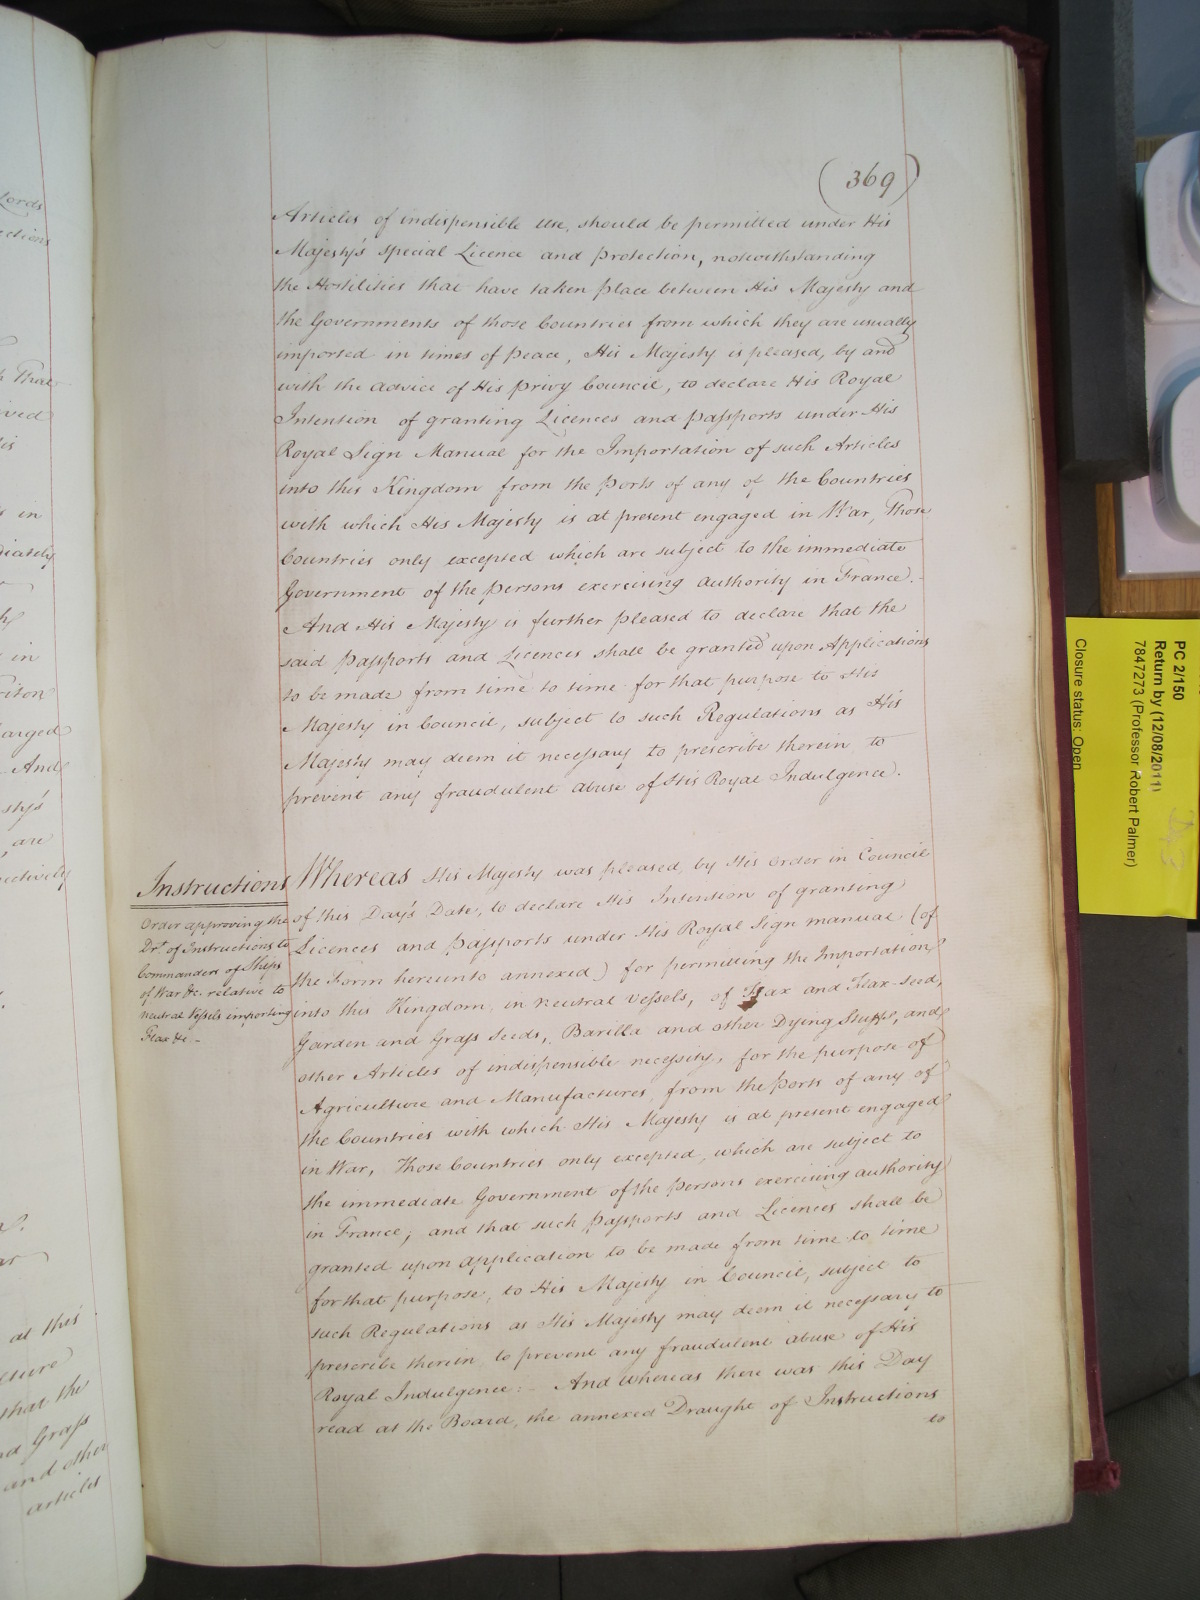 (369)
Articles of indispensible use, should be permitted under His
Majesty's special Licence and Protection, notwithstanding
the Hostilities that have taken place between His Majesty and
the Governments of those Countries from which they are usually
imported in times of Peace, His Majesty is pleased, by and
with the advice of His Privy Council, to declare His Royal
Intention of granting Licences and Passports under His
Royal Sign Manual for the Importation of such Articles
into this Kingdom from the Ports of any of the Countries
with which His Majesty is at present engaged in War, Those
Countries only excepted which are subject to the immediate
Government of the Persons exercising authority in France.-
And His Majesty is further pleased to declare that the
said Passports and Licences shall be granted upon Applications
to be made from time to time for that purpose to His
Majesty in Council, subject to such Regulations as His
Majesty may deem it necessary to prescribe therein to
prevent any fraudulent abuse of His Royal Indulgence.
Instructions
Order approving the
Drt. of Instructions to
Commanders of Ships
of War &c. relative to
neutral Vessels importing
Flax &c.-
Whereas His Majesty was pleased, by His Order in Council
of this Day's Date, to declare His Intension of granting
Licences and Passports under His Royal Sign manual (of
the Form hereunto annexed) for permitting the Importation,
into this Kingdom, in neutral Vessels, of Flax and Flax-seed,
Garden and Grass Seeds, Barilla and other Dying Stuffs, and
other Articles of indispensible necessity, for the purpose of
Agriculture and Manufactures, from the Ports of any of
the Countries with which His Majesty is at present engaged
in War, Those Countries only excepted, which are subject to
the immediate Government of the Persons exercising authority
in France; and that such Passports and Licences shall be
granted upon application to be made from time to time
for that purpose, to His Majesty in Council, subject to
such Regulations as His Majesty may deem it necessary to
prescribe therein to prevent any fraudulent abuse of His
Royal Indulgence:- And whereas there was this Day
read at the Board, the annexed Draught of Instructions
to
Lords
That
in
in
And
are
at this
that the
Grass
and other
articles
PC 2/150
Return by (12/08/2011)
7847273 (Professor Robert Palmer)
Closure status: Open